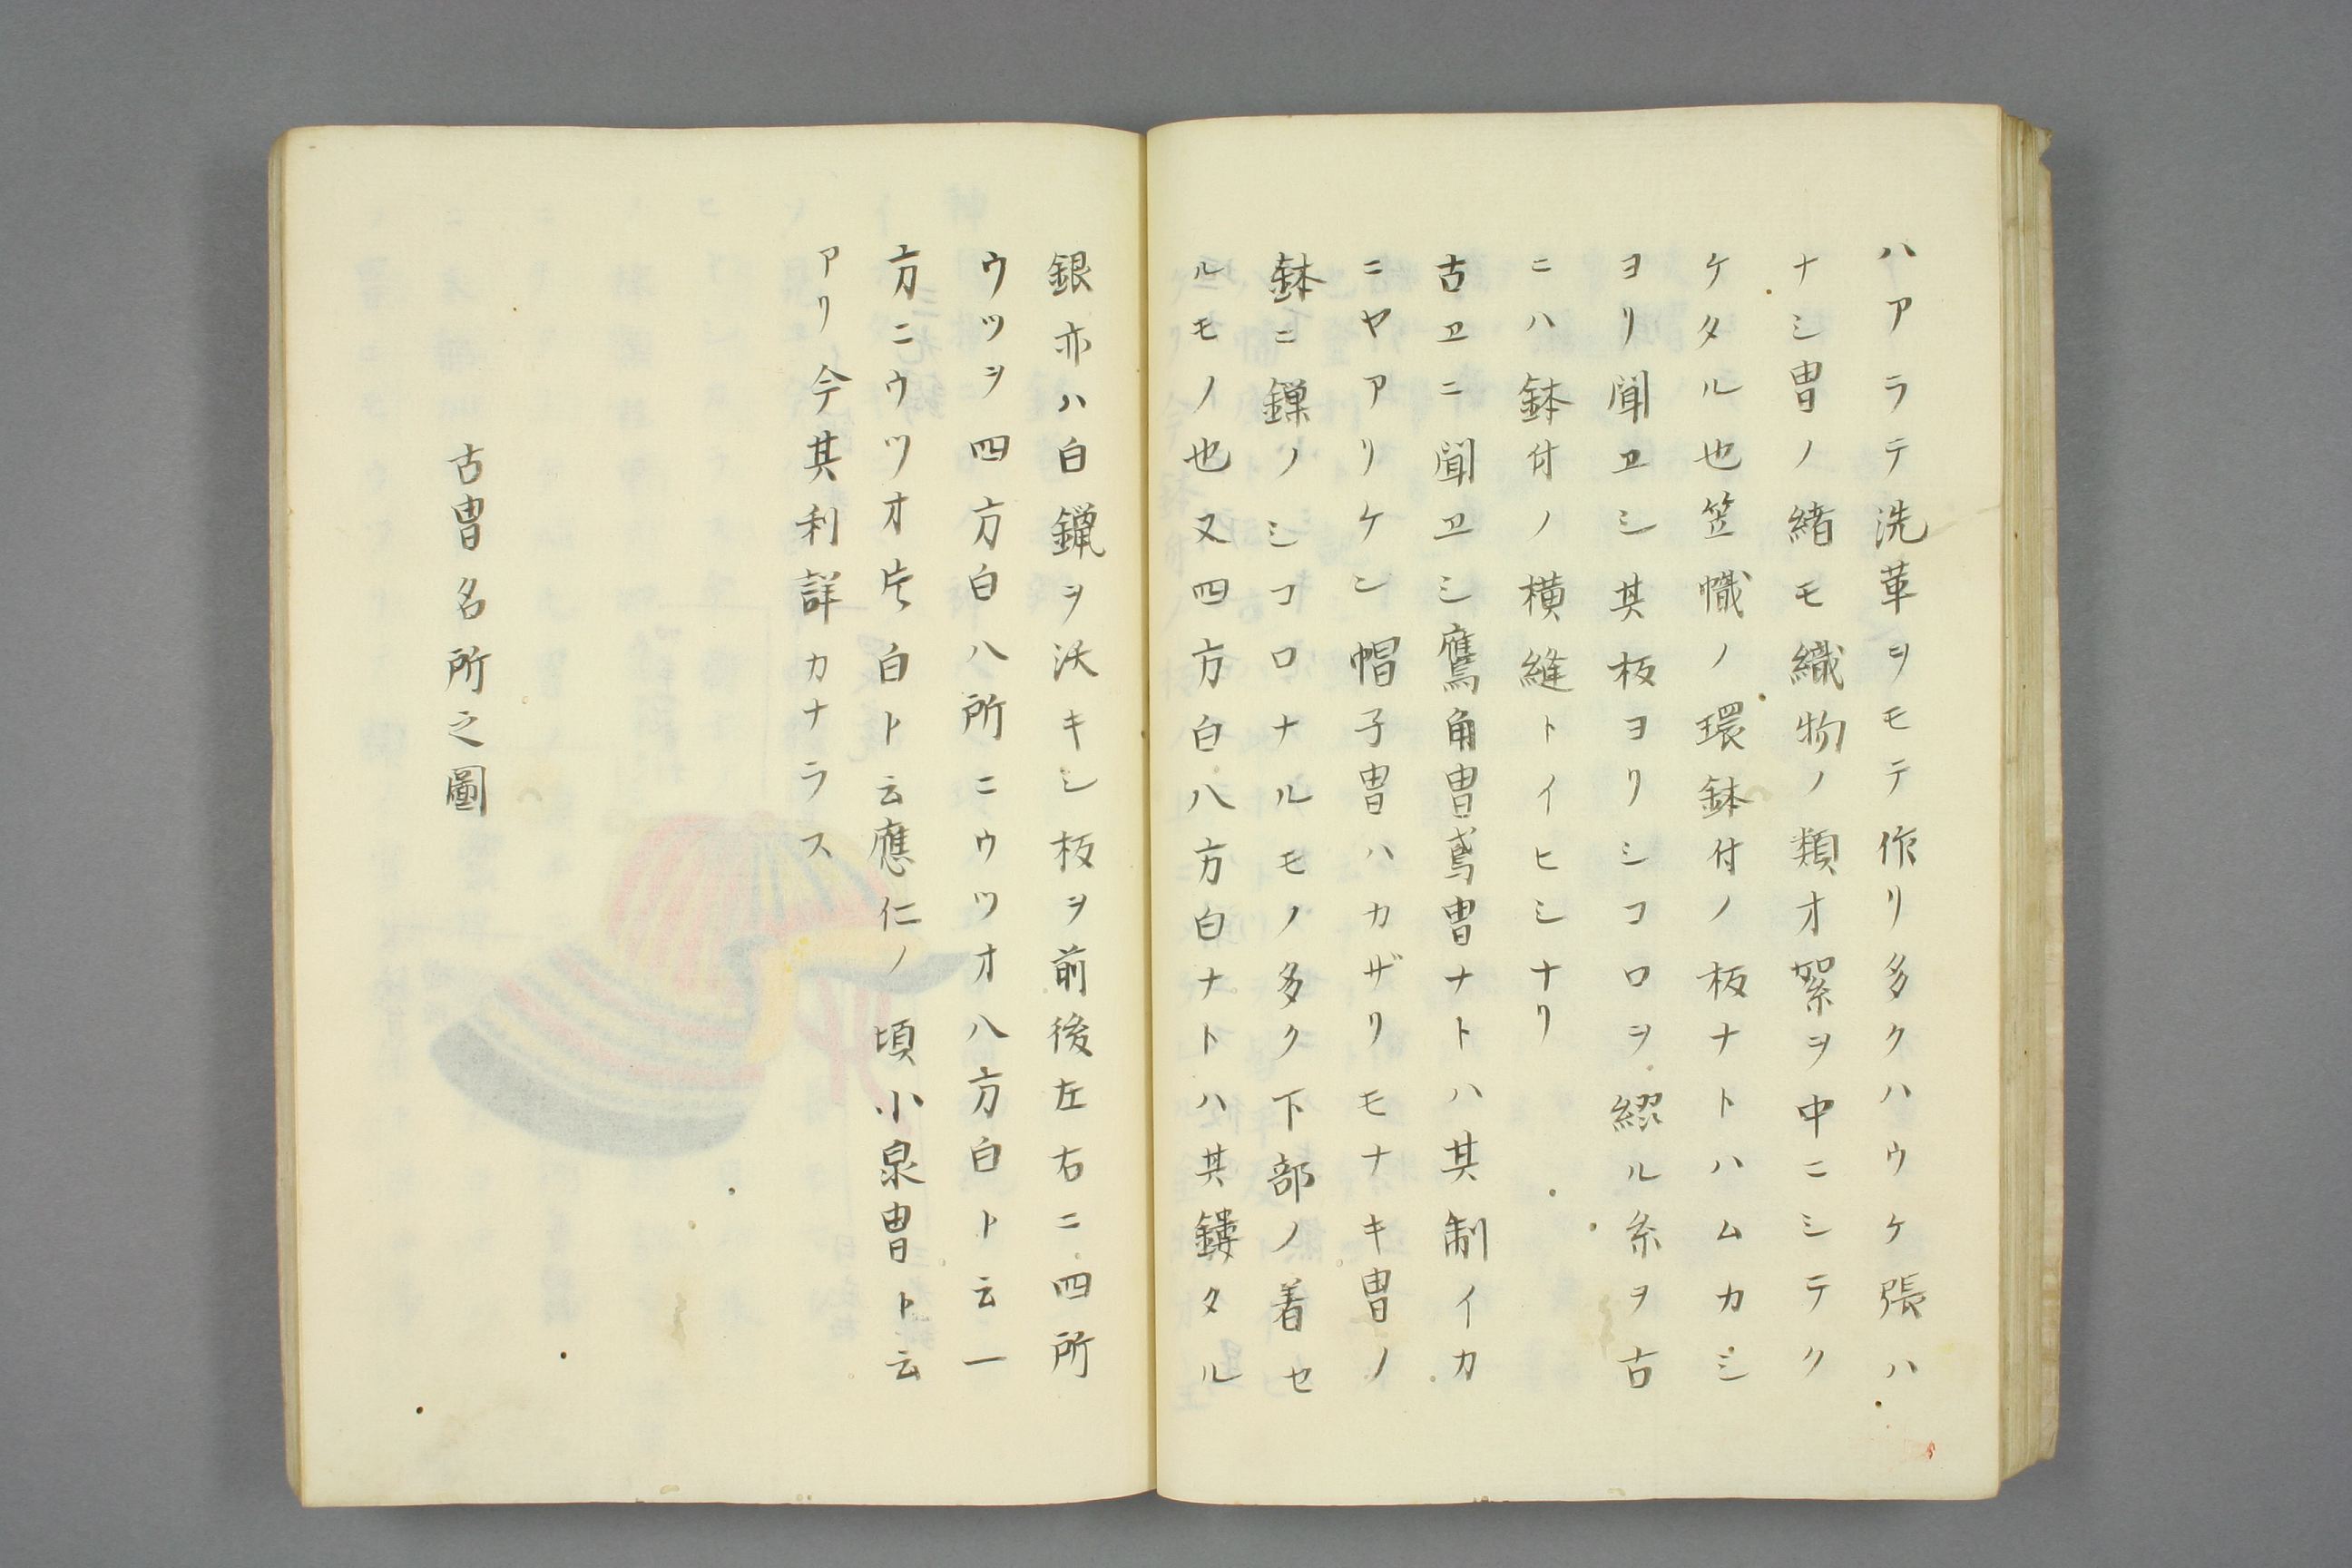 ハアラテ洗革ヲモテ作リ多クハウケ張ハ
ナシ冑ノ緒モ織物ノ類オ絮ヲ中ニシテク
ケタル也笠幟ノ環鉢付ノ板ナトハムカシ
ヨリ聞ヱシ其板ヨリシコロヲ綴ル糸ヲ古
ニハ鉢付ノ横縫トイヒシナリ
古ヱニ聞ヱシ鷹角冑鳶冑ナトハ其制イカ
ニヤアリケシ帽子冑ハカザリモナキ冑ノ
鉢ニ鏁ノシコロナルモノ多ク下部ノ着セ
ルモノ也又四方白八方白ナトハ其鏤タル
銀亦ハ白鑞ヲ沃キシ板ヲ前後左右ニ四所
ウツヲ四方白八所ニウツオ八方白ト云一
方ニウツオ片白ト云應仁ノ頃小泉冑ト云
アリ今其利詳カナラス
古冑名所之圖